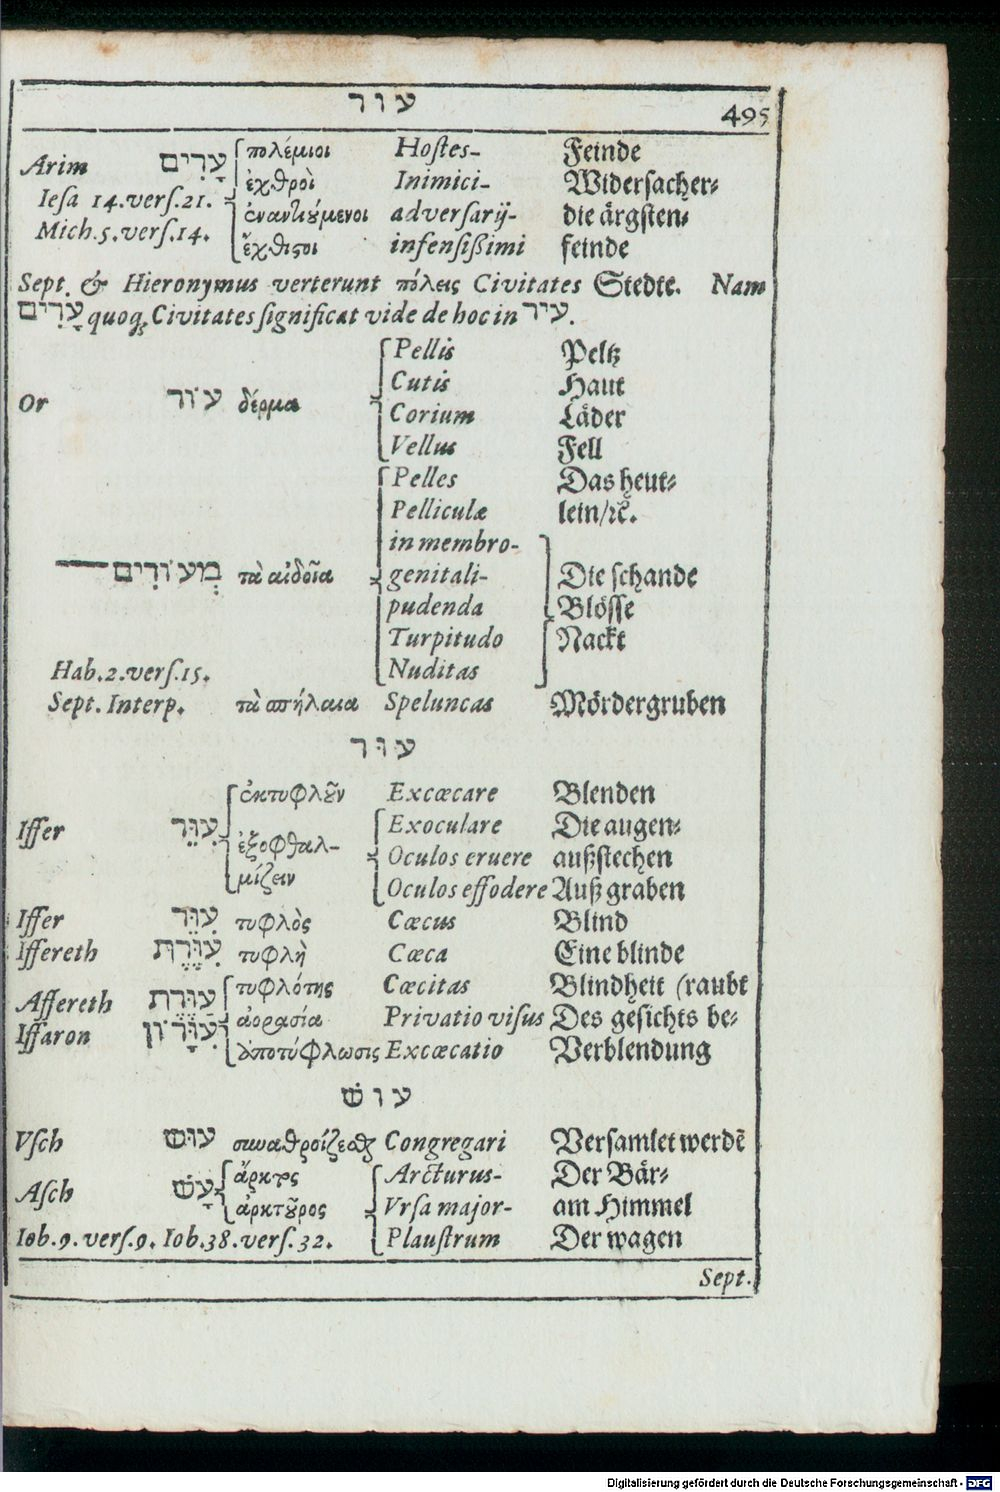 עור 495
Arim עָרִים πολέμιοι Hostes- Feinde
ἐχθροὶ Inimici- Widersacher⸗
Iesa 14.vers.21. ἐναντιούμενοι adversarij- die ärgsten⸗
Mich.5.vers.14. ἔχθιστοι infensißimi feinde
Sept. & Hieronymus verterunt πόλεις Civitates Stedte. Nam
עָרִים quoq; Civitates significat vide de hoc in עיר.
Pellis Peltz
Cutis Haut
Or עוֹר δέρμα Corium Läder
Vellus Fell
Pelles Das heut⸗
Pelliculæ lein/ꝛc.
in membro-
מְעוֹרִים τὰ αἰδοῖα genitali- Die schande
pudenda Blösse
Turpitudo Nackt
Hab.2.vers.15. Nuditas
Sept. Interp. τὰ σπήλαια Speluncas Mördergruben
עור
ἐκτυφλοῦν Excœcare Blenden
Iffer עִוֵּר Exoculare Die augen⸗
ἐξοφθαλ- Oculos eruere außstechen
μίζειν Oculos effodere Auß graben
Iffer עִוֵּר τυφλὸς Cœcus Blind
Iffereth עִוֶּרֶת τυφλὴ Cœca Eine blinde
Affereth עַוֶּרֶת τυφλότης Cœcitas Blindheit (raubt
Iffaron עִוָּרוֹן ἀορασία Privatio visus Des gesichts be⸗
ἀποτύφλωσις Excœcatio Verblendung
עוש
Vsch עוּשׁ συναθροίζεσθαι Congregari Versamlet werdē
Asch עָשׁ ἄρκτος Arcturus- Der Bär⸗
ἀρκτοῦρος Vrsa major- am Himmel
Iob.9.vers.9. Iob.38.vers.32. Plaustrum Der wagen
Sept.
Digitalisierung gefördert durch die Deutsche Forschungsgemeinschaft - DFG